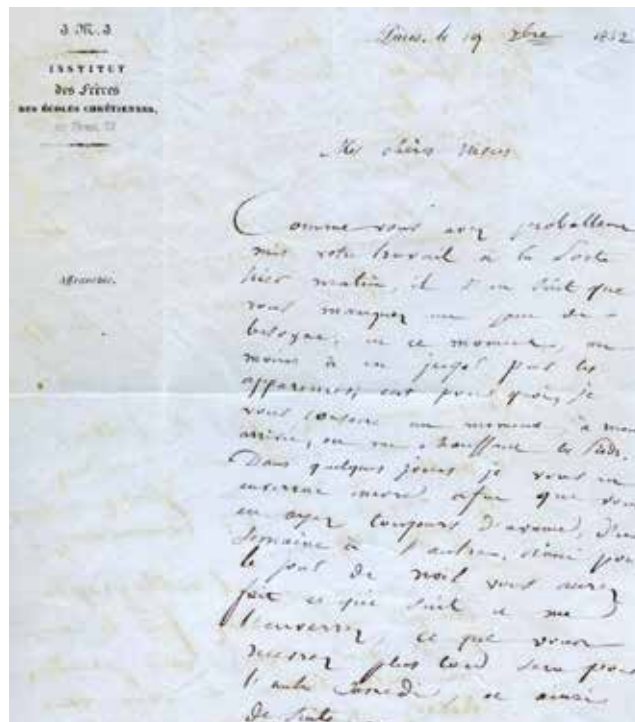 J. M. J
INSTITUT
des Frères
DES ÉCOLES CHRÉTIENNES,
Paris, le 19 xbre 1852
Affranchir.
Comme vous avez probableme
mis votre travail à la Poste
hier matin, il s'en suit que
vous manquez un peu de
besogne, en ce moment, au
moins à en juger par les
apparences; c'est pour quoi, je
vous consacre un moment à mon
arrivée, en me chauffant les pieds.
Dans quelques jours je vous en
enverrai encore afin que vous
en ayez toujours d'avance, d'une
semaine à l'autre, ainsi pour
le jour de noël vous aurez
fait ce qui suit et me
l'enverrez, ce que vous
recevrez plus tard sera pour
l'autre samedi et ainsi
de suite